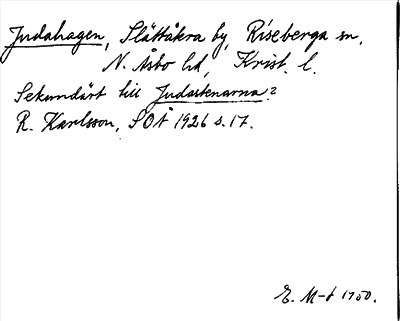 Judahagen, Slättåkra by, Riseberga sn,
N. Åsbo hd, Krist. l.
Sekundärt till Judastenarna?
R. Karlsson, SOÅ 1926 s. 17.
E. M-t 1950.